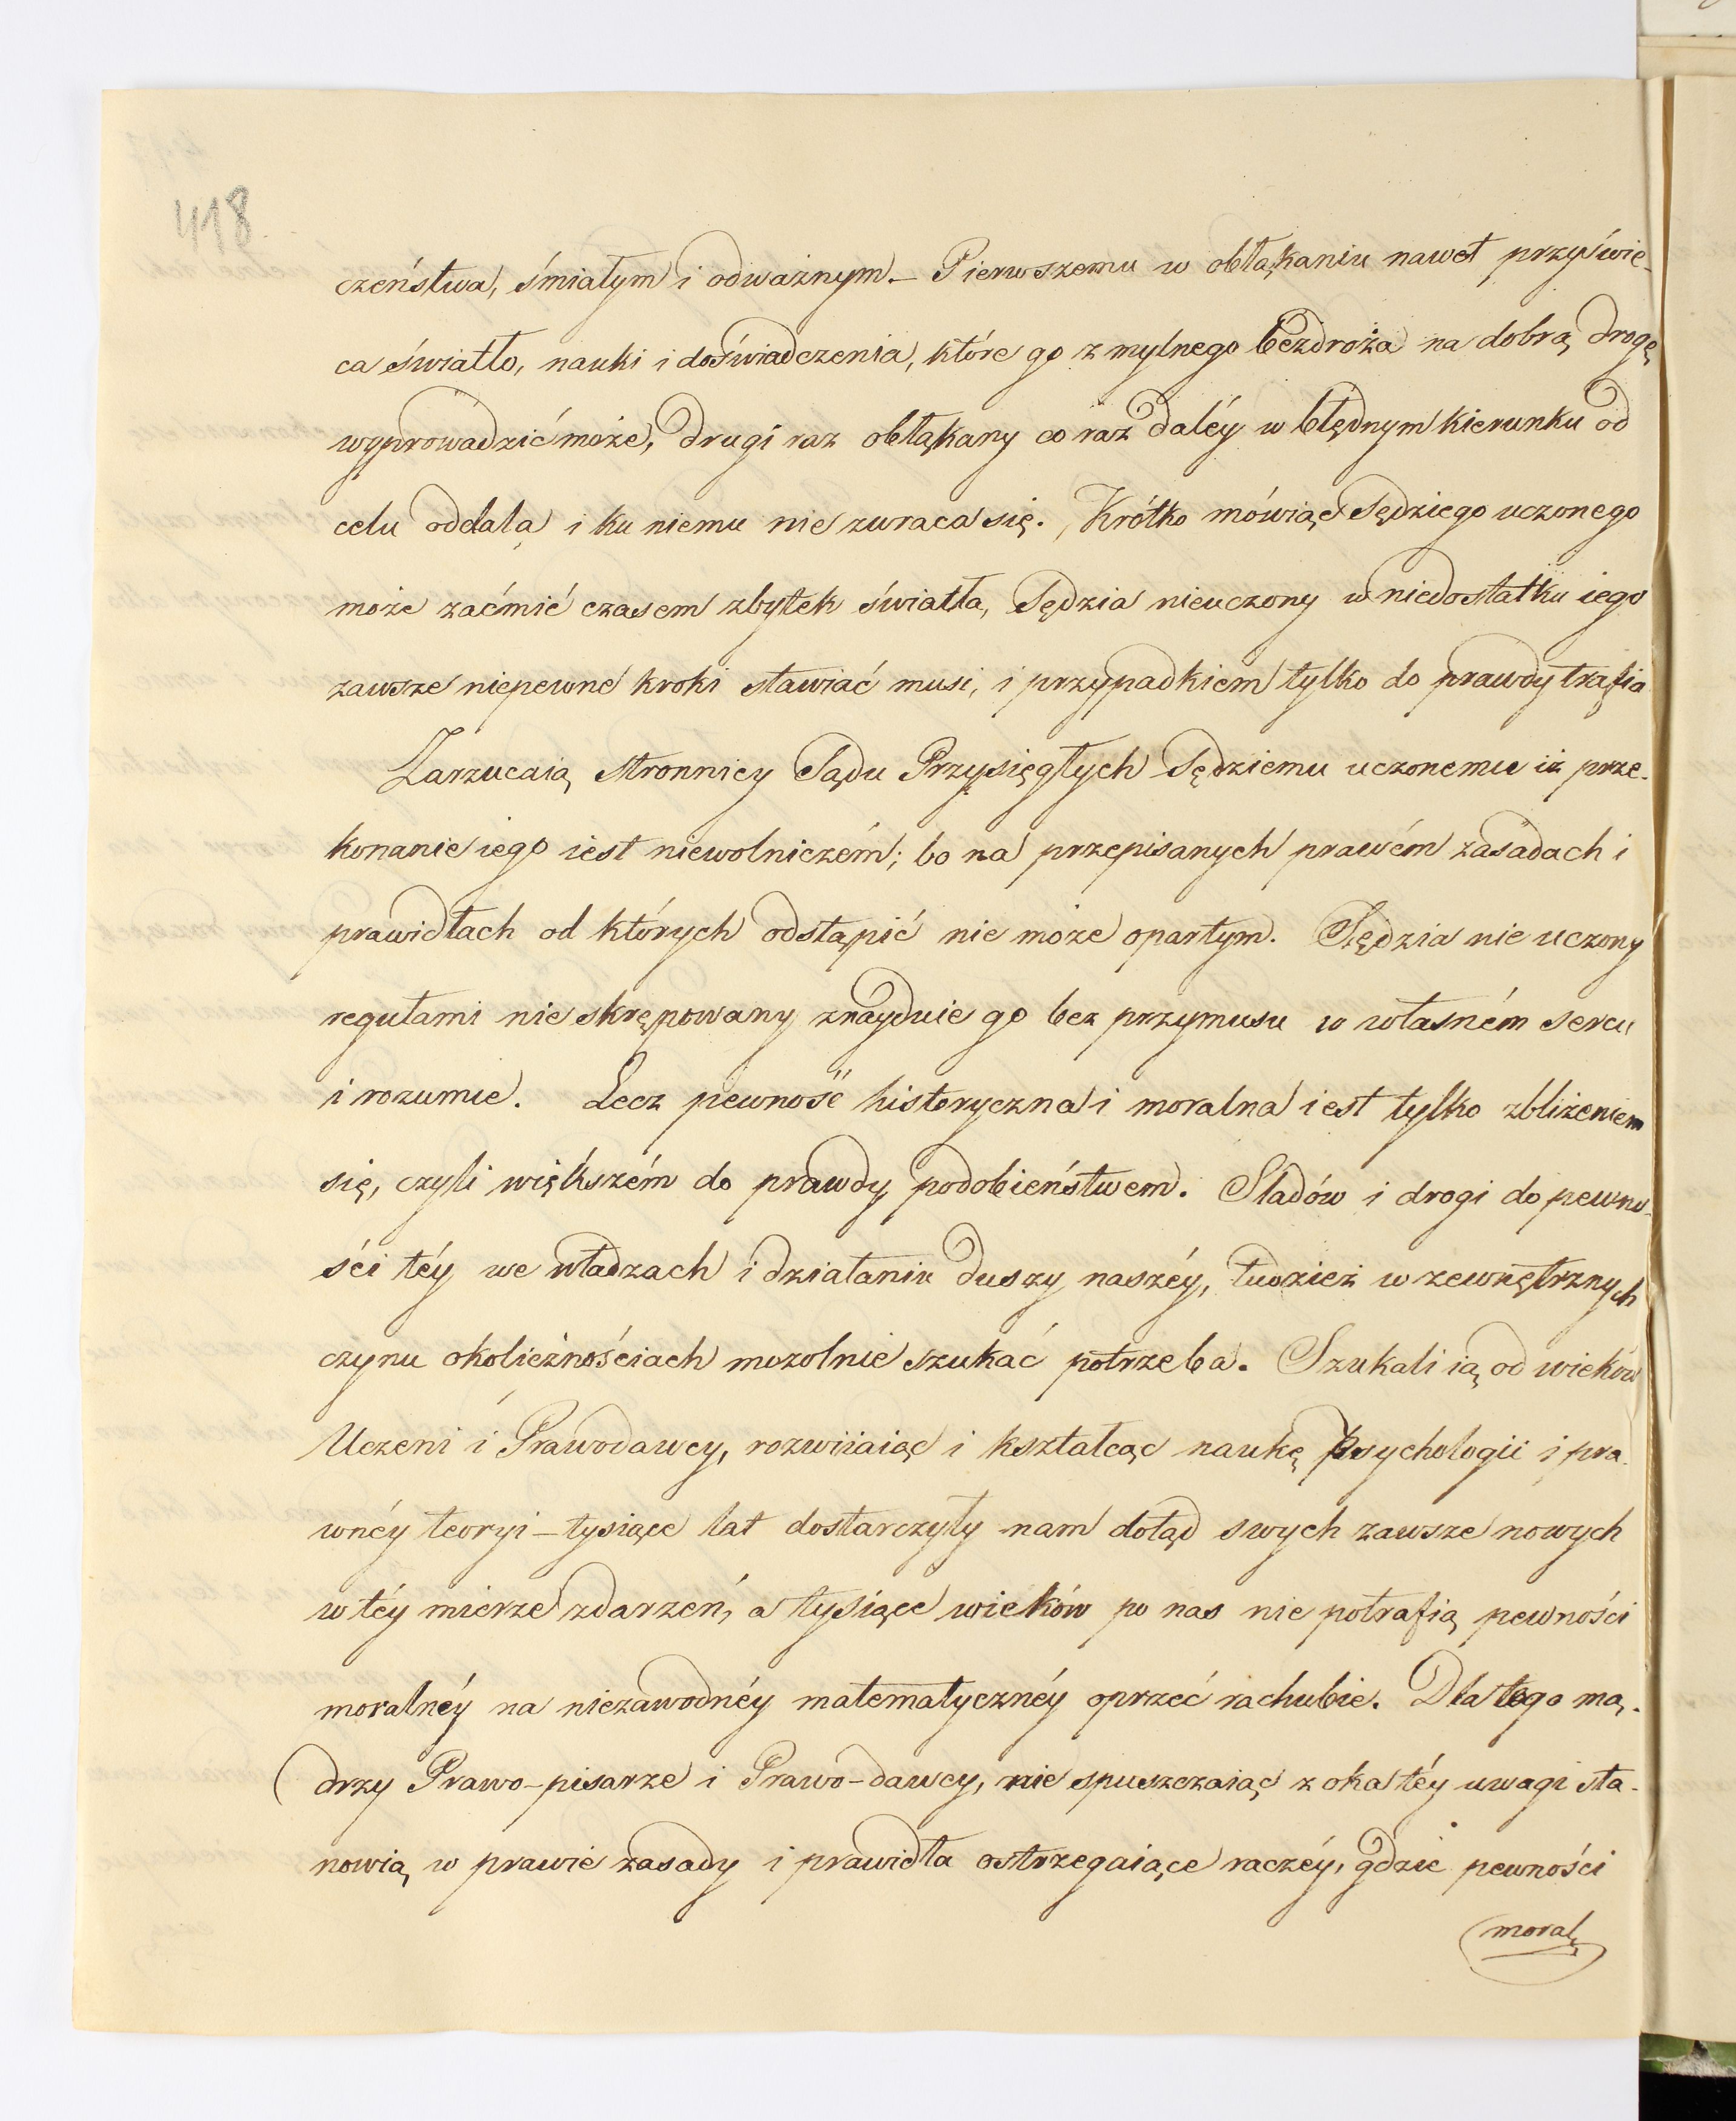 418.
czeństwa, śmiałym i odważnym. – Pierwszemu w obłąkaniu nawet przyświe-
ca światło, nauki i doświadczenia, które go z mylnego bezdroża na dobrą drogę
wyprowadzić może, drugi raz obłąkany co raz daléy w błędnym kierunku od
celu oddala i ku niemu nie zwraca się. Krótko mówiąc Sędziego uczonego
może zaćmić czasem zbytek światła, Sędzia nieuczony w niedostatku iego
zawsze niepewne kroki stawiać musi, i przypadkiem tylko do prawdy trafia
Zarzucaią stronnicy Sądu Przysięgłych Sędziemu uczonemu iż prze-
konanie iego iest niewolniczém; bo na przepisanych prawém zasadach i
prawidłach od których odstąpić nie może opartym. Sędzia nie uczony
regułami nie skrępowany znayduie go bez przymusu w własném sercu
i rozumie. Lecz pewność historyczna i moralna iest tylko zbliżeniem
się, czyli większém do prawdy podobieństwem. Sladów i drogi do pewno-
ści téy we władzach i działaniu duszy naszéy, tudzież w zewnętrznych
czynu okolicznościach mozolnie szukać potrzeba. Szukali ią od wieków
Uczeni i Prawodawcy, rozwiiaiąc i kształcąc naukę psychologii i pra-
wnéy teoryi – tysiące lat dostarczyły nam dotąd swych zawsze nowych
w téy mierze zdarzeń, a tysiące wieków po nas nie potrafią pewności
moralnéy na niezawodnéy matematycznéy oprzeć rachubie. Dla tego mą-
drzy Prawo-pisarze i Prawo-dawcy, nie spuszczaiąc z oka téy uwagi sta-
nowią w prawie zasady i prawidła ostrzegaiące raczéy, gdzie pewności
moral,